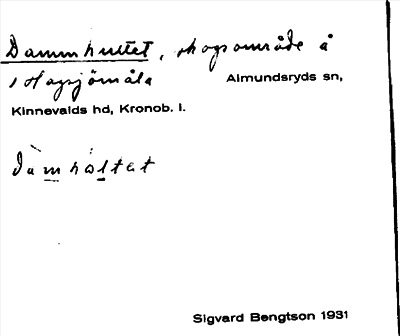 Dammhultet, skogsområde å
Hagsjömåla Almundsryds sn,
Kinnevalds hd, Kronob. l.
dàmhøltet
Sigvard Bengtson 1931